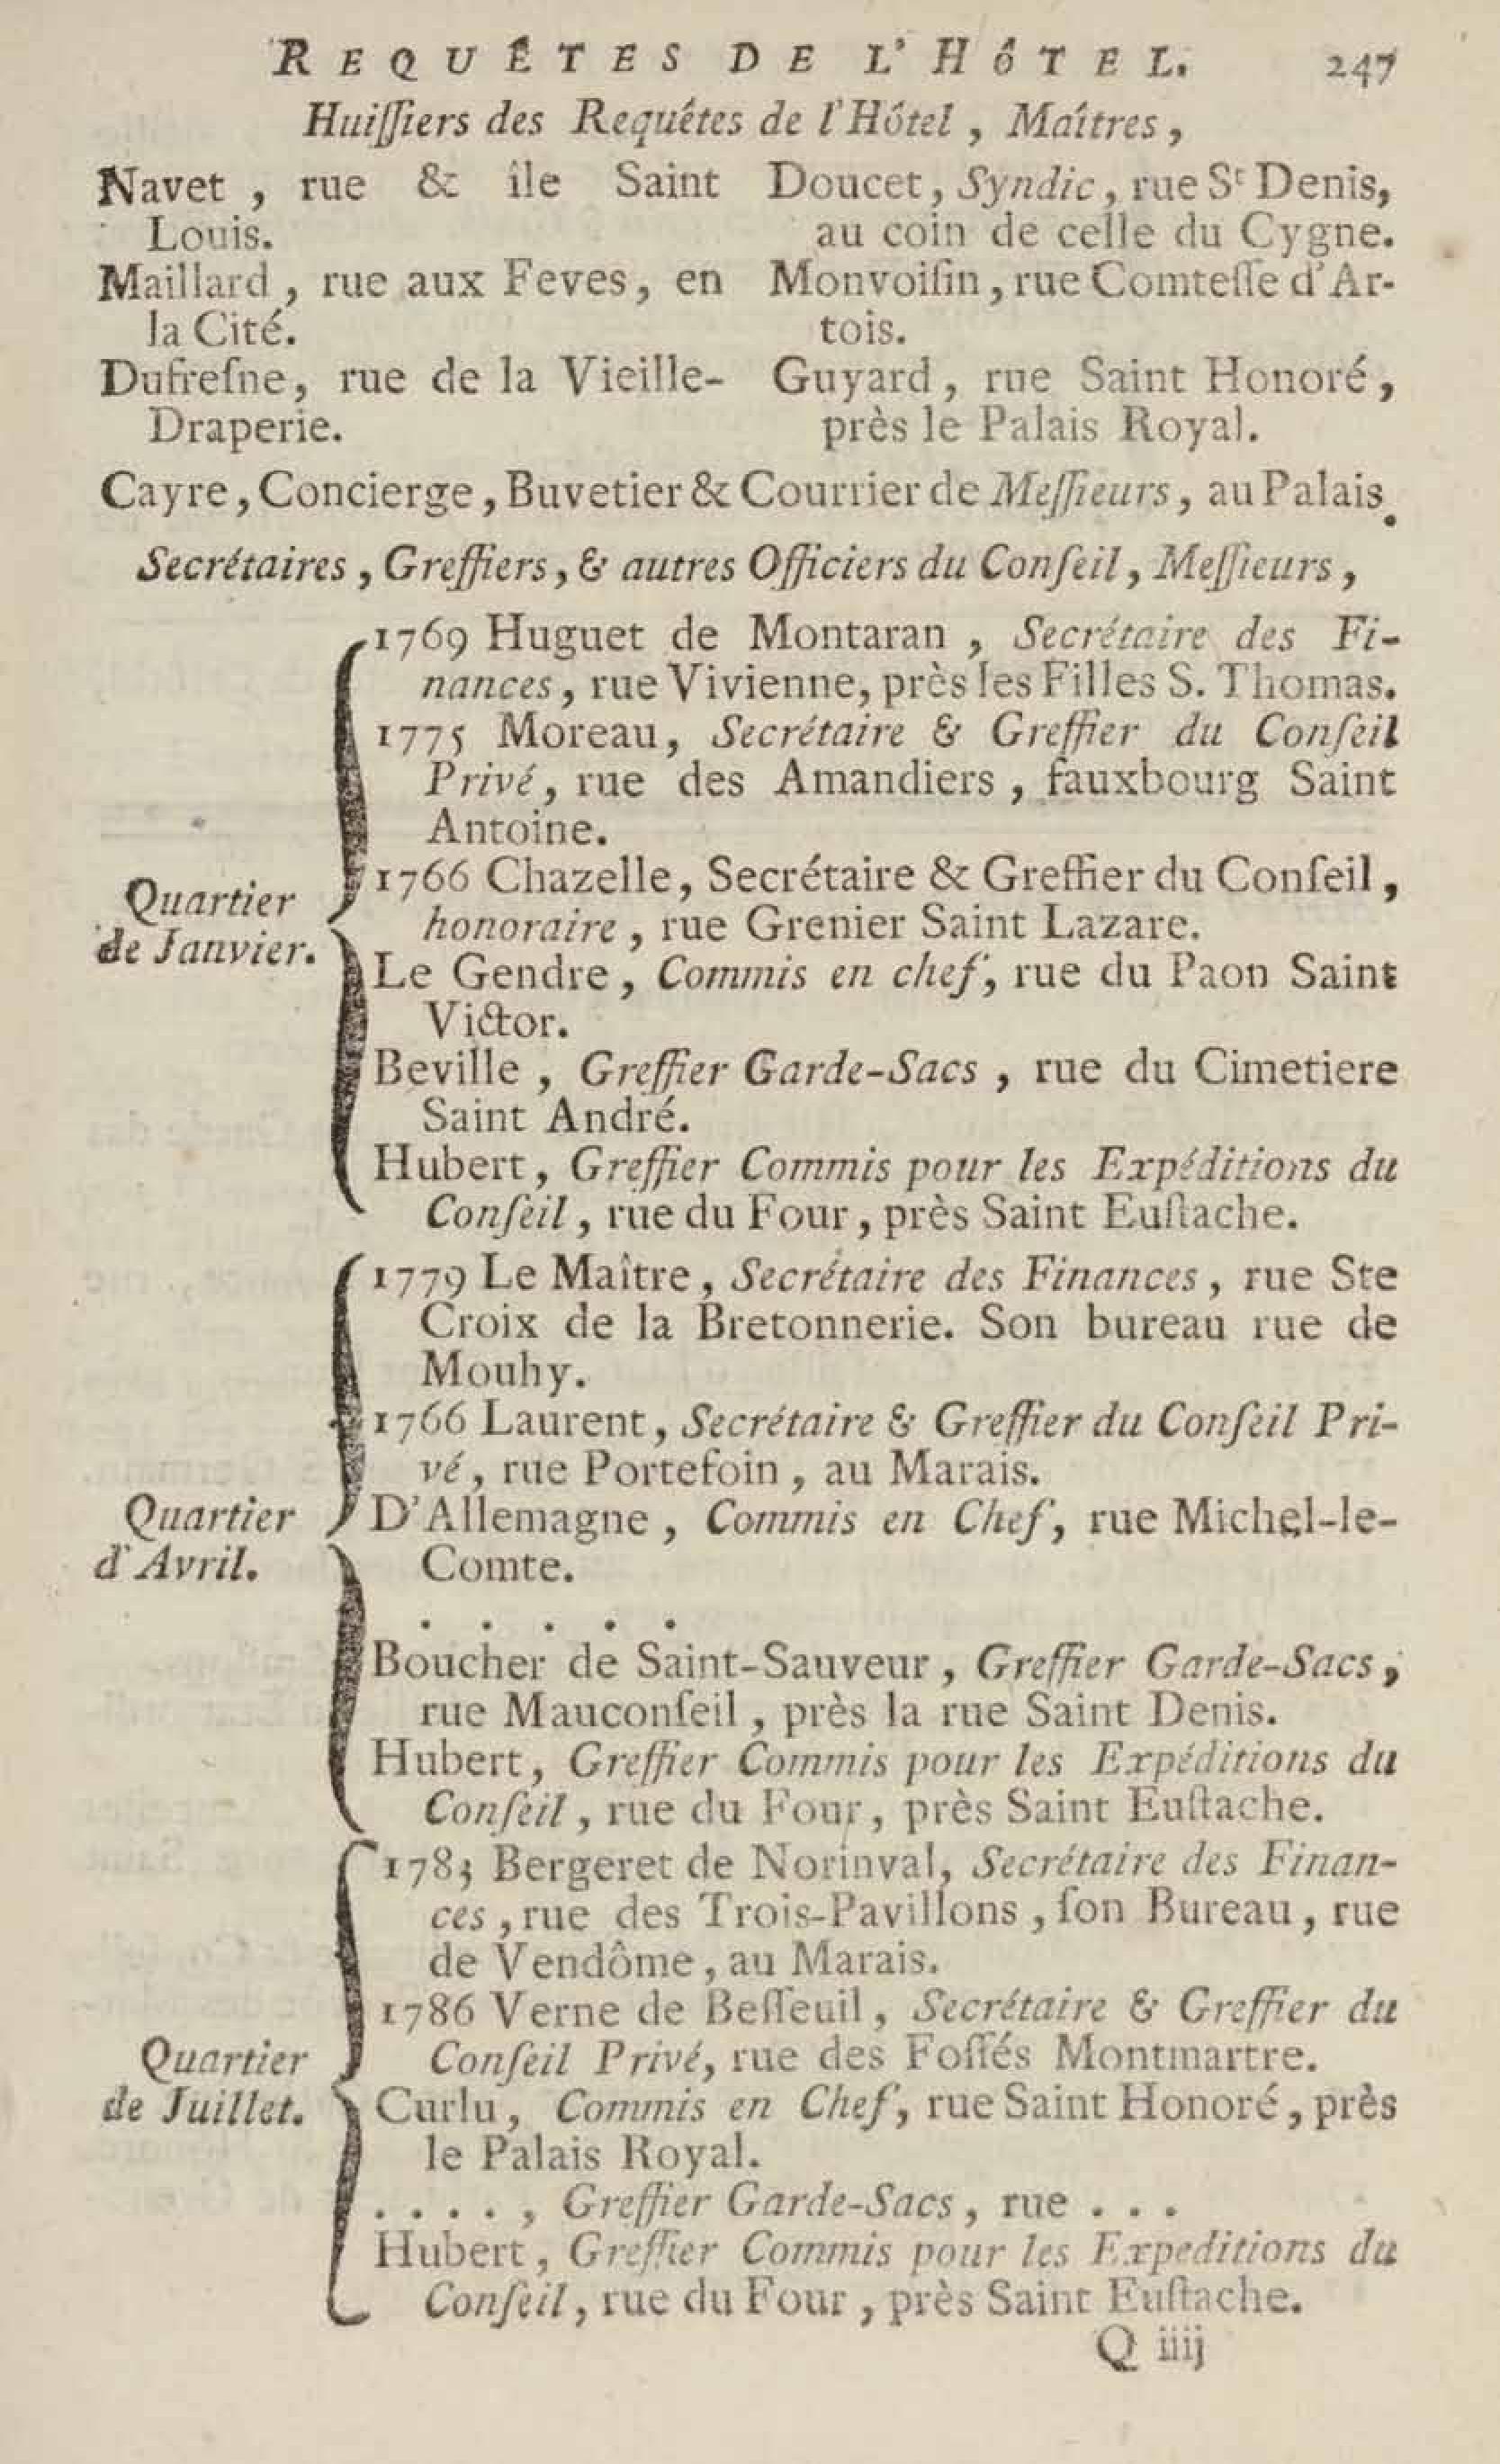 REQUÊTES DE L'HÔTEL. 247
Huiſſiers des Requêtes de l'Hôtel, Maîtres,
Navet, rue & île Saint
Louis.
Maillard, rue aux Feves, en
la Cité.
Dufreſne, rue de la Vieille-
Draperie.
Doucet, Syndic, rue St Denis,
au coin de celle du Cygne.
Monvoiſin, rue Comteſſe d'Ar-
tois.
Guyard, rue Saint Honoré,
près le Palais Royal.
Cayre, Concierge, Buvetier & Courrier de Meſſieurs, au Palais.
Secrétaires, Greffiers, & autres Officiers du Conſeil, Meſſieurs,
Quartier
de Janvier.
1769 Huguet de Montaran, Secrétaire des Fi-
nances, rue Vivienne, près les Filles S. Thomas.
1775 Moreau, Secrétaire & Greffier du Conſeil
Privé, rue des Amandiers, fauxbourg Saint
Antoine.
1766 Chazelle, Secrétaire & Greffier du Conſeil,
honoraire, rue Grenier Saint Lazare.
Le Gendre, Commis en chef, rue du Paon Saint
Victor.
Beville, Greffier Garde-Sacs, rue du Cimetiere
Saint André.
Hubert, Greffier Commis pour les Expéditions du
Conſeil, rue du Four, près Saint Euſtache.
Quartier
d'Avril.
1779 Le Maître, Secrétaire des Finances, rue Ste
Croix de la Bretonnerie. Son bureau rue de
Mouhy.
1766 Laurent, Secrétaire & Greffier du Conſeil Pri-
vé, rue Portefoin, au Marais.
D'Allemagne, Commis en Chef, rue Michel-le-
Comte.
. . . . .
Boucher de Saint-Sauveur, Greffier Garde-Sacs,
rue Mauconſeil, près la rue Saint Denis.
Hubert, Greffier Commis pour les Expéditions du
Conſeil, rue du Four, près Saint Euſtache.
Quartier
de Juillet.
1783 Bergeret de Norinval, Secrétaire des Finan-
ces, rue des Trois-Pavillons, ſon Bureau, rue
de Vendôme, au Marais.
1786 Verne de Beſſeuil, Secrétaire & Greffier du
Conſeil Privé, rue des Foſſés Montmartre.
Curlu, Commis en Chef, rue Saint Honoré, près
le Palais Royal.
. . . . , Greffier Garde-Sacs, rue . . .
Hubert, Greffier Commis pour les Expeditions du
Conſeil, rue du Four, près Saint Euſtache.
Q iiij